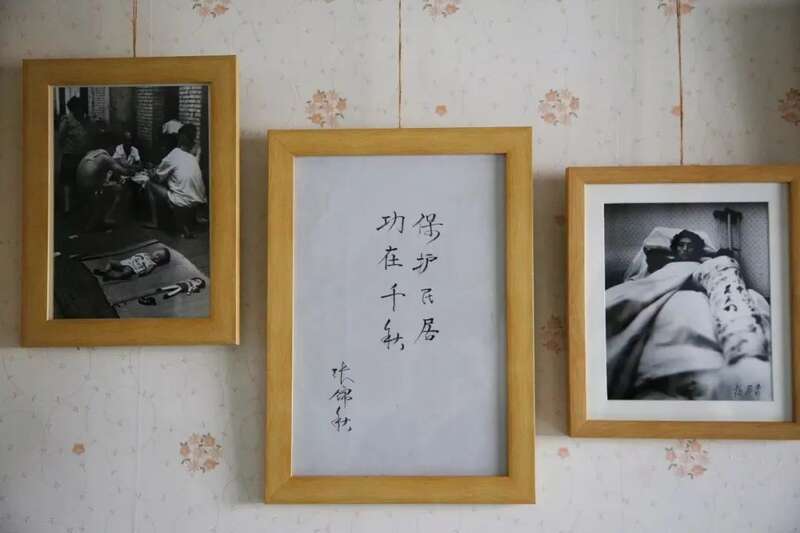 保护民居
功在千秋
张锦秋